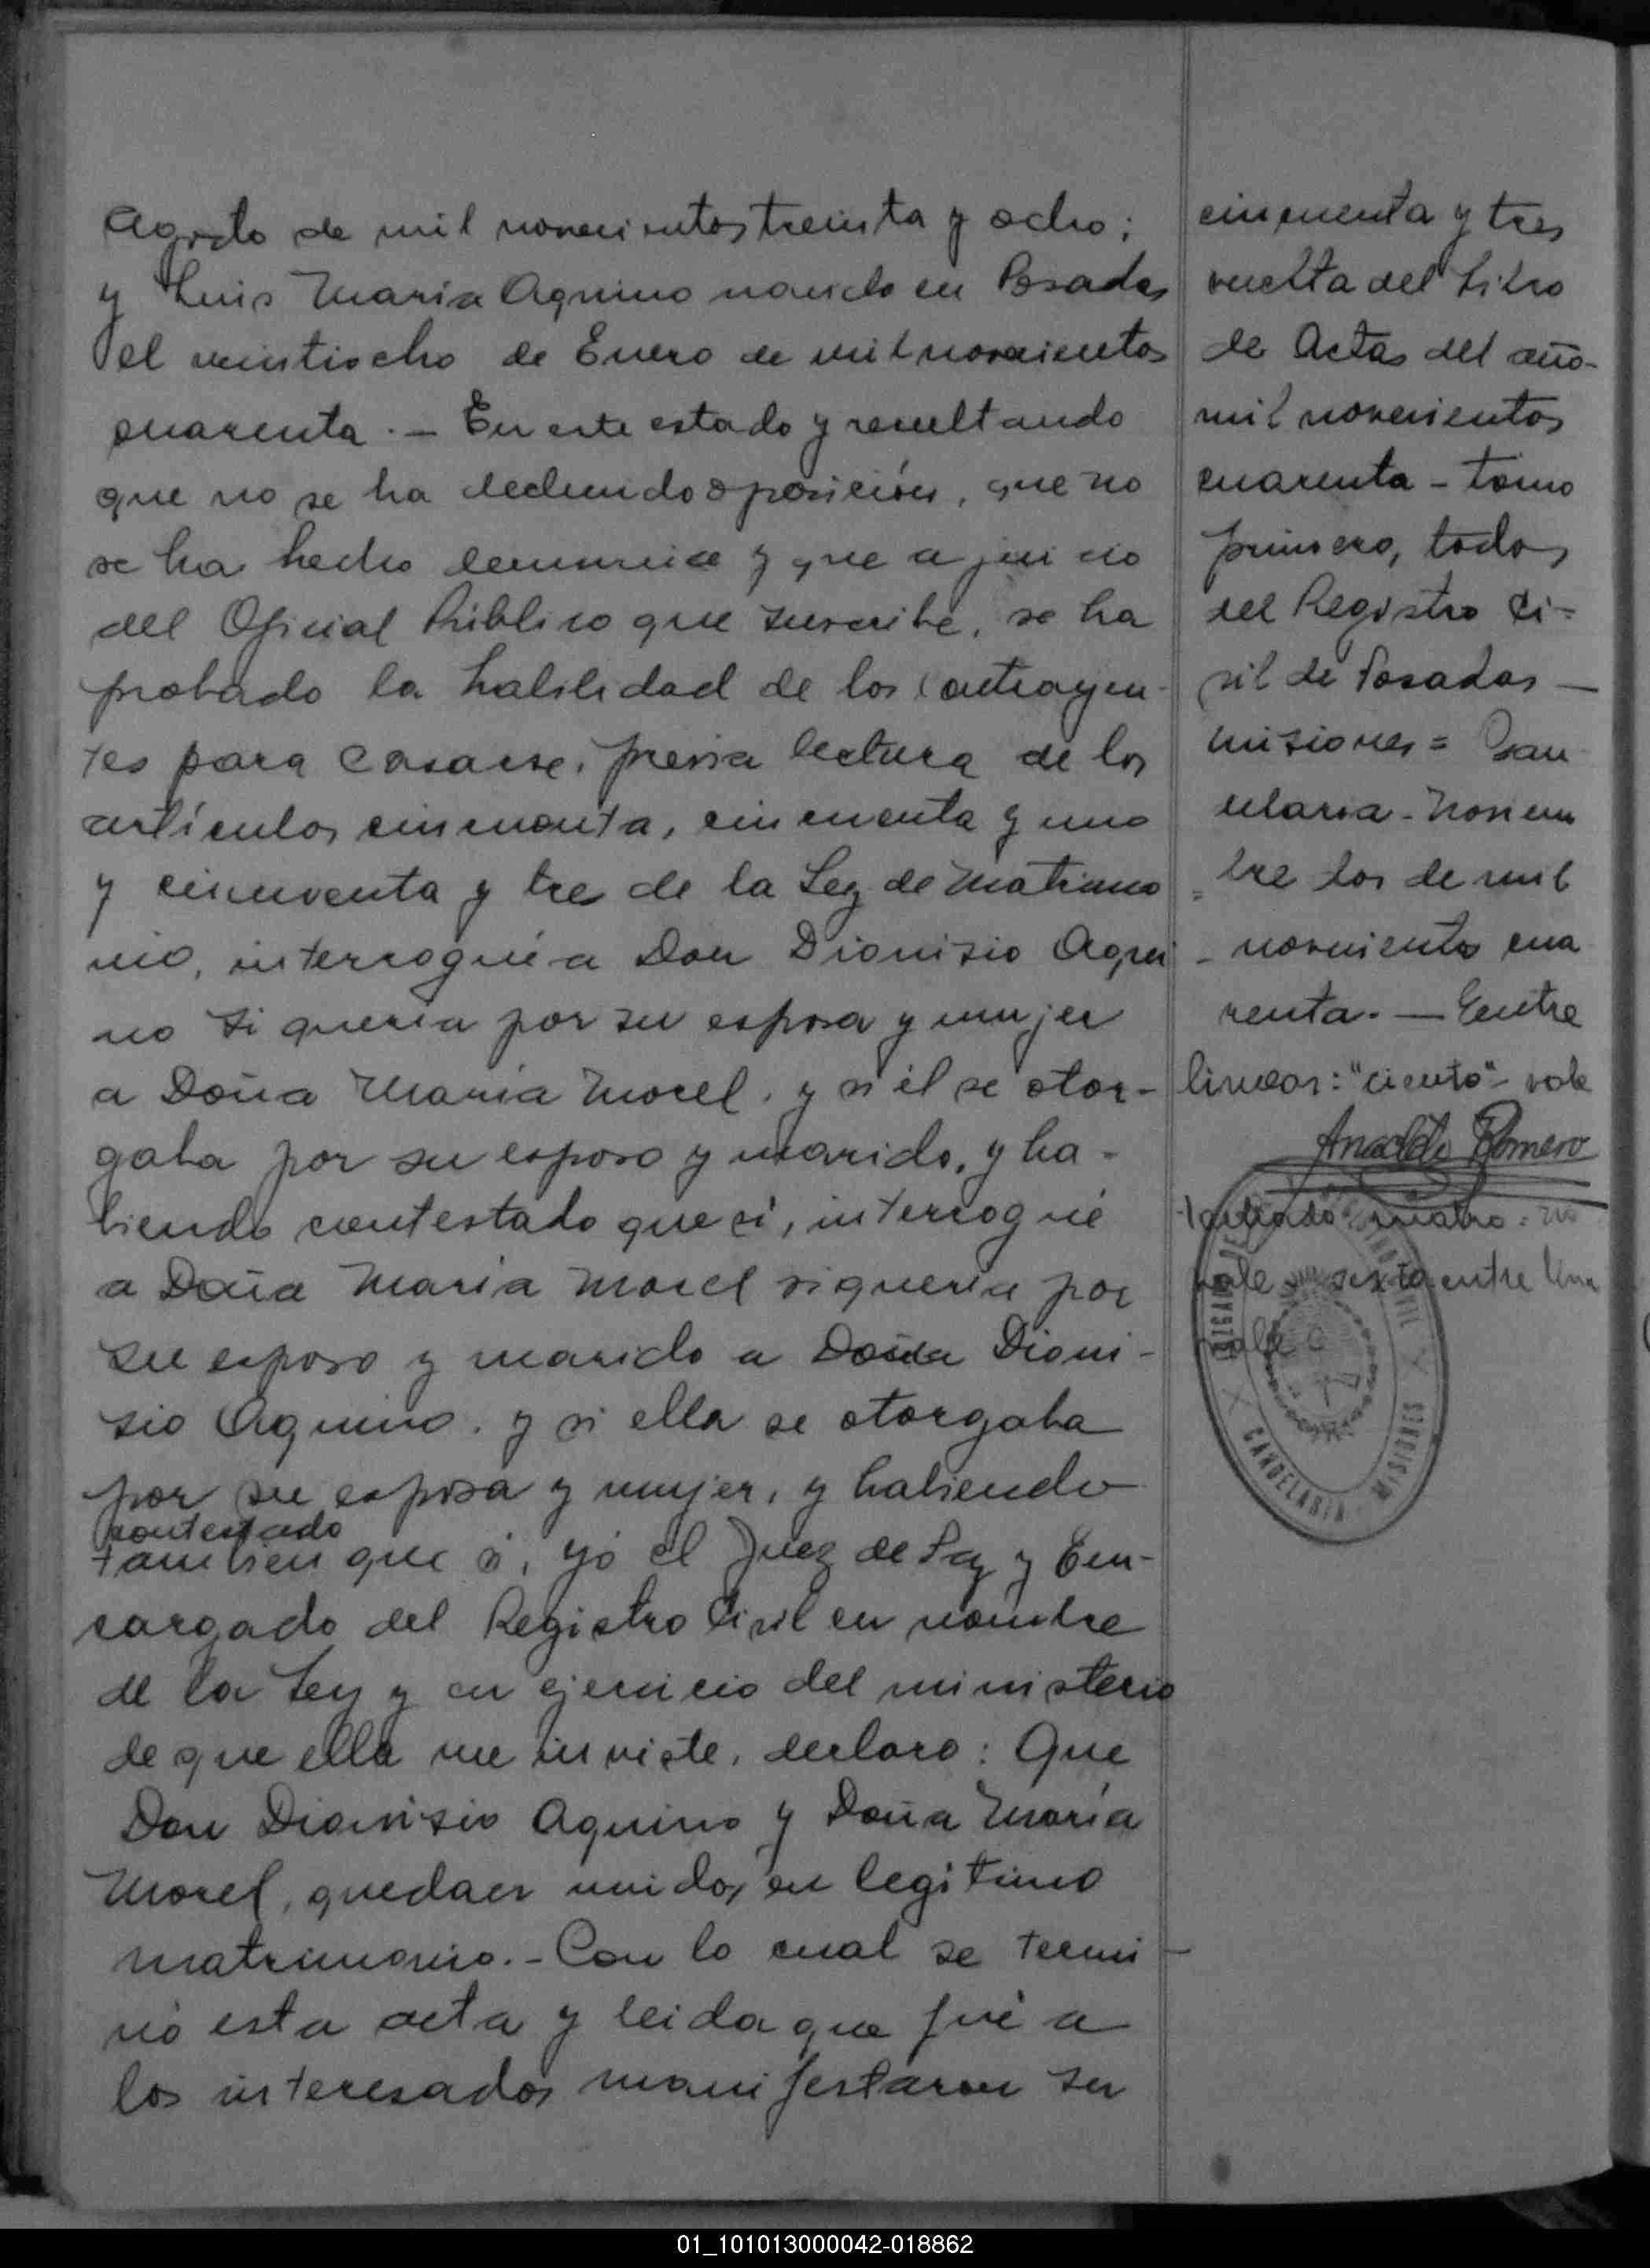 Agosto de mil novecientos treinta y ocho;
y Luis María Aquino nacido en Posadas
el veintiocho de Enero de mil novecientos
cuarenta. — En este estado y resultando
que no se ha deducido oposición, que no
se ha hecho denuncia y que a juicio
del Oficial Público que suscribe, se ha
probado la habilidad de los contrayen-
tes para casarse, previa lectura de los
artículos cincuenta, cincuenta y uno
y cincuenta y tre de la Ley de Matrimo
nio, interrogué a Don Dionisio Aqui
no si quería por su esposa y mujer
a Doña María Morel, y si él se otor-
gaba por su esposo y marido, y ha-
biendo contestado que si, interrogué
a Doña María Morel si quería por
su esposo y marido a Dioni-
sio Aquino, y si ella se otorgaba
por su esposa y mujer, y habiendo
contestado
tambien que si, yo el Juez de Paz y En-
cargado del Registro Civil en nombre
de la Ley y en ejercicio del ministerio
de que ella me inviste, declaro: Que
Don Dionisio Aquino y Doña María
Morel, quedan unidos en legitimo
matrimonio. - Con lo cual se termi-
nó esta acta y leida que fué a
los interesados manifestaron su
cincuenta y tres
vuelta del Libro
de Actas del año
mil novecientos
cuarenta - tomo
primero, todos
del Registro Ci-
vil de Posadas —
Misiones =
Noviem
bre dos de mil
novecientos cua
renta. — Entre
lineas: "ciento" - vale
Arnaldo Romero
Testado: cuatro: no
vale sexto entre line
vale
REGISTRO CIVIL
CANDELARIA - MISIONES